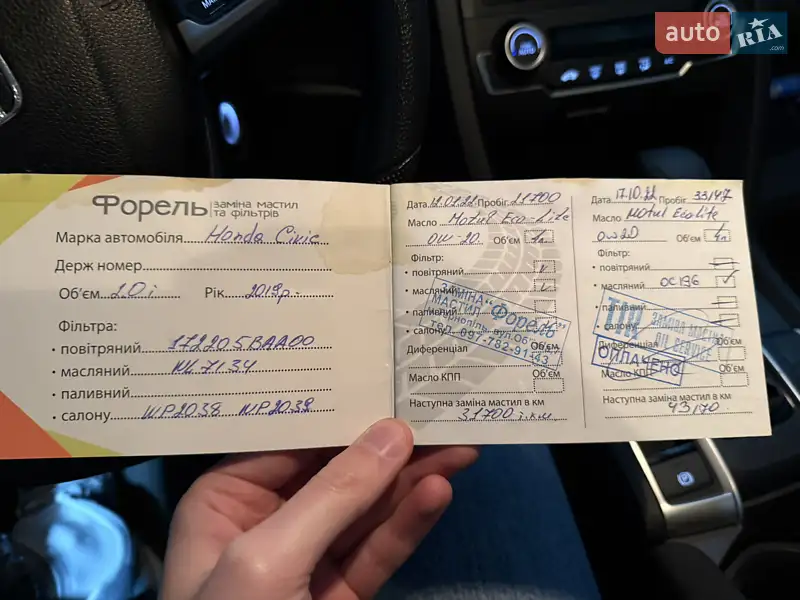 auto RIA .com
Форель заміна мастил та фільтрів
Марка автомобіля Honda Civic
Держ номер
Об'єм 2.0 i Рік 2019 р.
Фільтра:
• повітряний 172205BAA00
• масляний
• паливний
• салону WP2038 WP2039
Дата Пробіг 21700
Масло Motul Eco-Lite
0W-20. Об'єм
Фільтр:
• повітряний v
• масляний v
• паливний
• салону
ЗАМІНА МАСТИЛ "Форель"
тел. 097-782-91-43
Диференціал Об'єм
Масло КПП Об'єм
Наступна заміна мастил в км
31700 т.км.
Дата 17.10.22 Пробіг 33147
Масло Motul Ecolite
0W20 Об'єм 4л
Фільтр:
• повітряний
• масляний OC196
• паливний
• салону
ЗАМІНА МАСТИЛ
OIL SERVICE
ОПЛАЧЕНО
Диференціал Об'єм
Масло КПП Об'єм
Наступна заміна мастил в км
43170